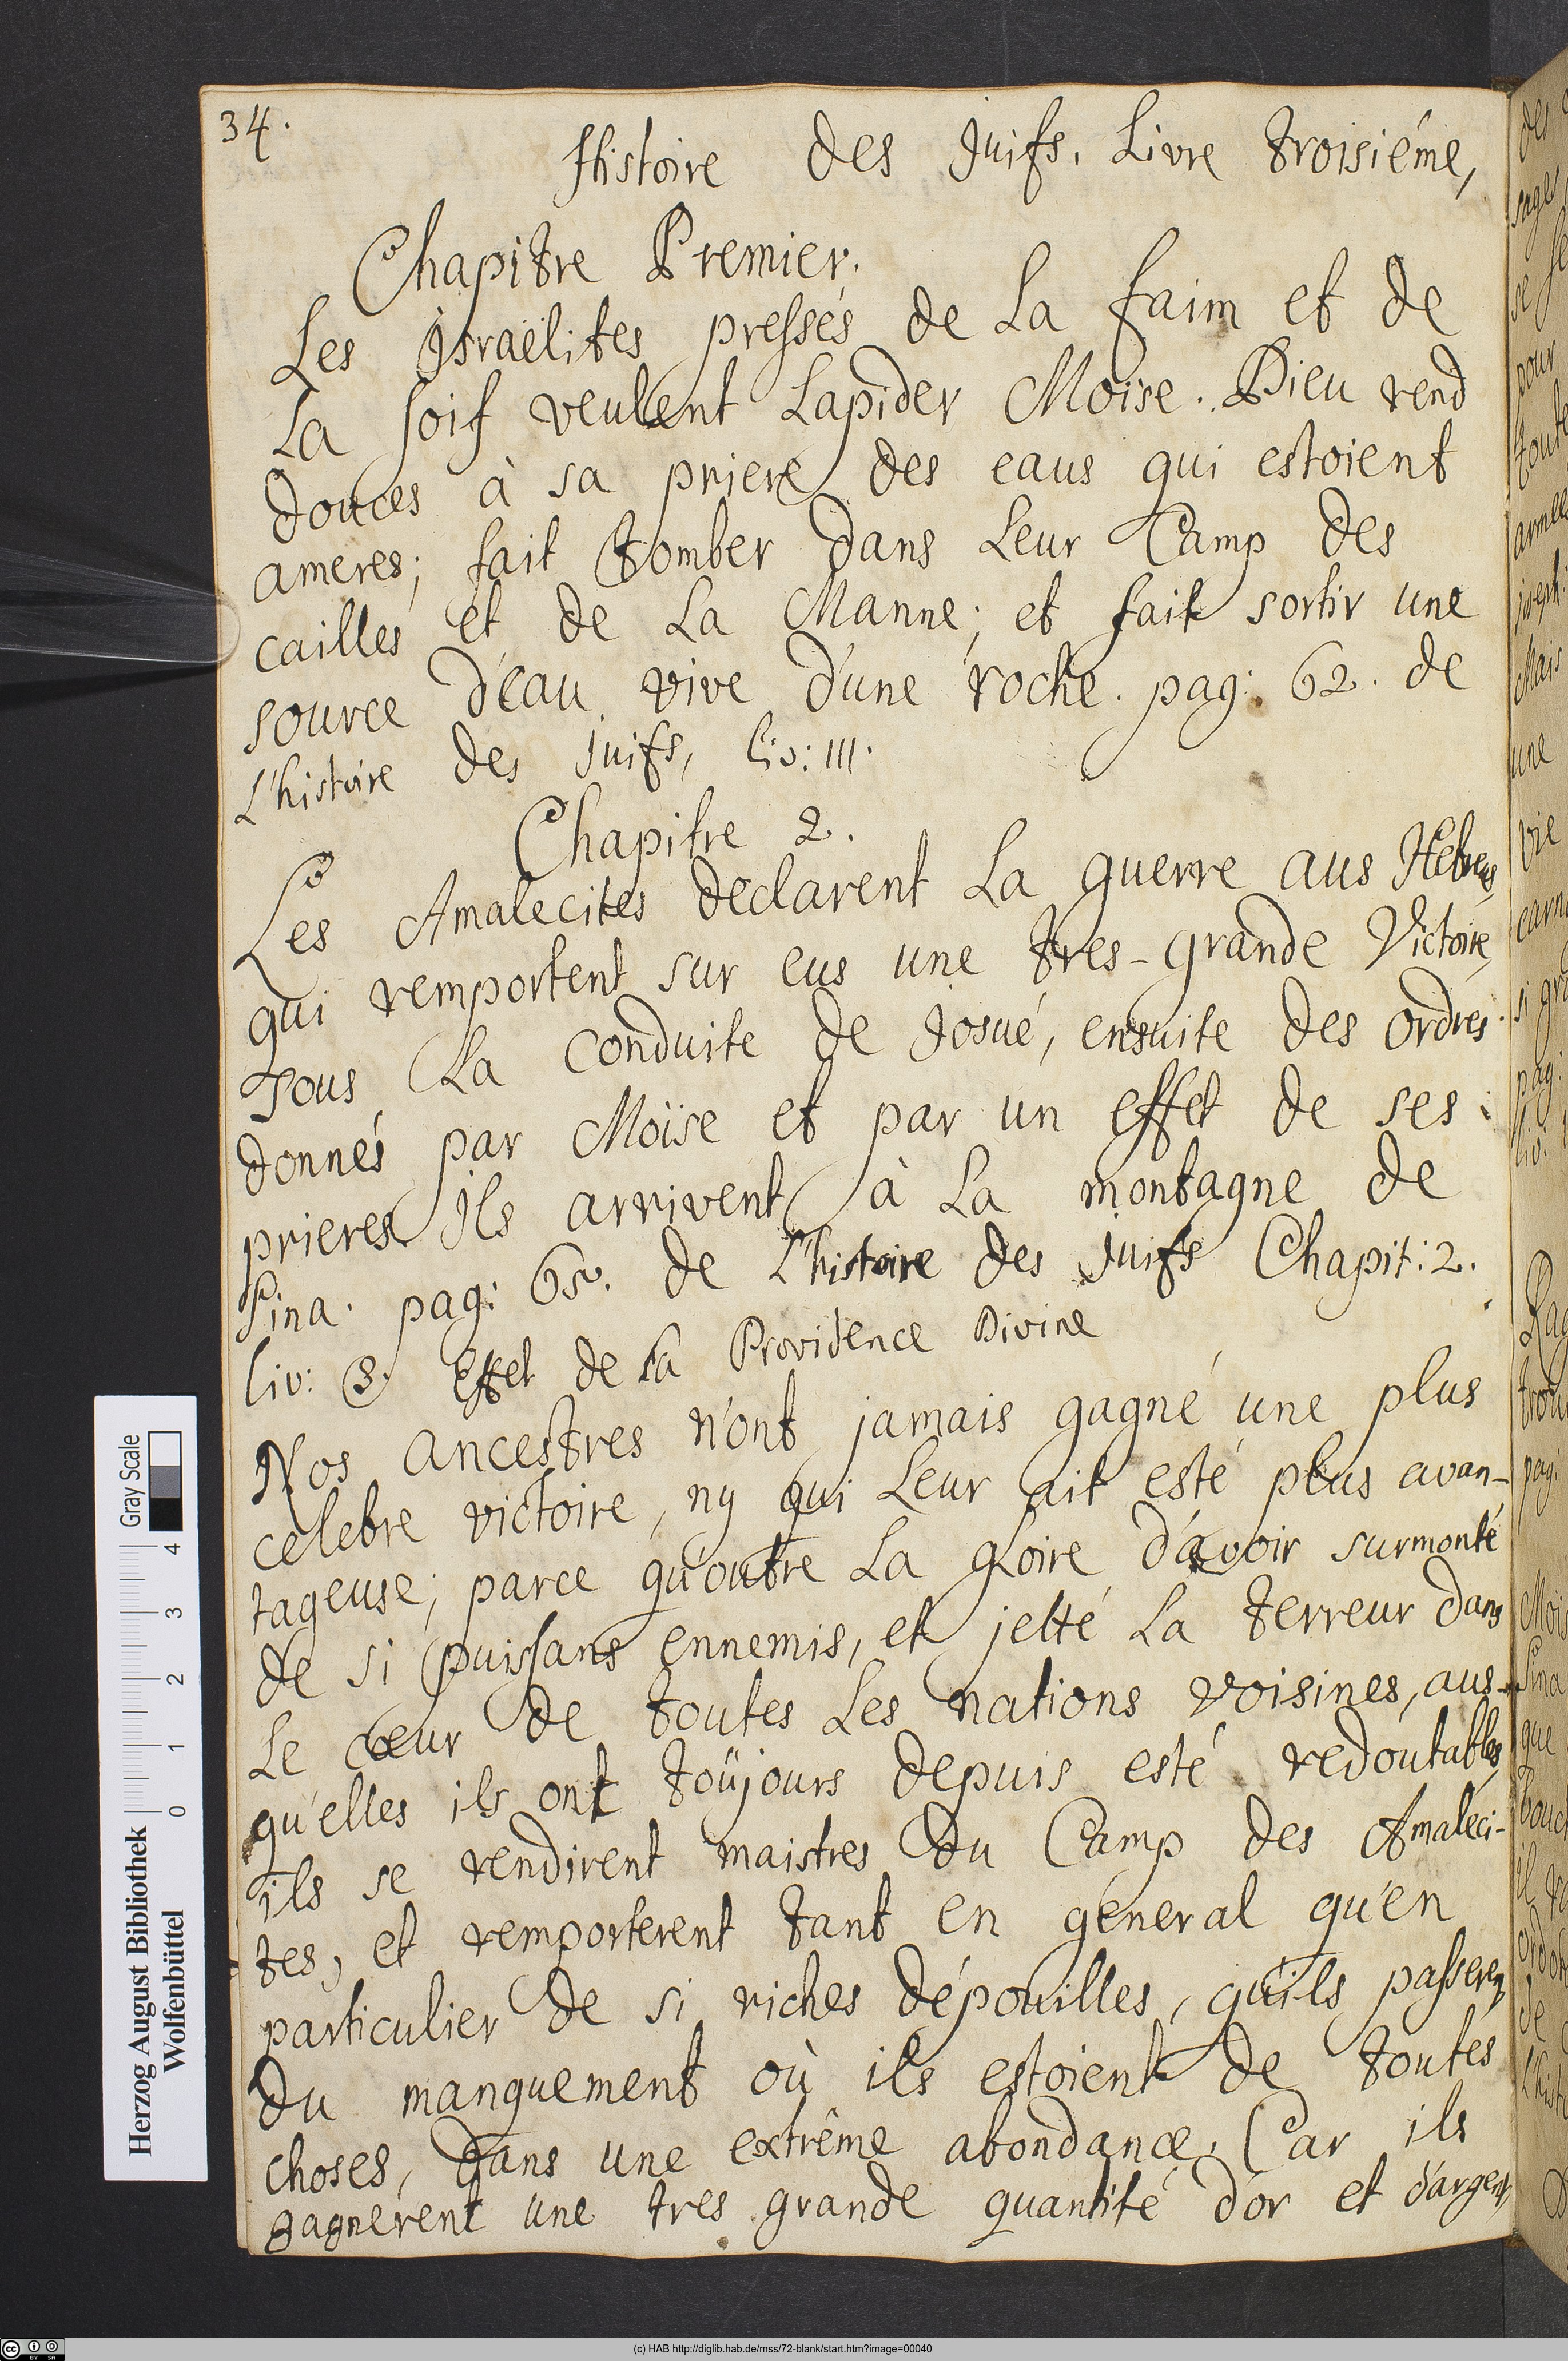 34.
Histoire des Juifs. Livre troisiéme,
Chapitre Premier.
Les Israëlites pressés de La faim et de
La soif veulent Lapider Moïse. Dieu rend
douces à sa priere des eaus qui estoient
ameres; fait tomber dans Leur Camp des
cailles et de La Manne; et fait sortir une
source d'eau vive d'une roche. pag: 62. de
L'histoire des Juifs, liv: III.
Chapitre 2.
Les Amalecites declarent La guerre aus Hebreus,
qui remportent sur eus une tres-grande Victoire,
sous La conduite de Josué, ensuite des ordres
donnés par Moïse et par un effet de ses
prieres Ils arrivent à La montagne de
Sina. pag: 65. de L'histoire des Juifs Chapit: 2.
liv: 3. Effet de La Providence Divine
Nos ancestres n'ont jamais gagné une plus
celebre victoire, ny qui Leur ait esté plus avan-
tageuse; parce qu'outre La gloire d'avoir surmonté
de si puissans ennemis, et jetté La terreur dans
Le cœur de toutes Les nations voisines, aus-
qu'elles ils ont toûjours depuis esté redoutables,
ils se rendirent maistres du Camp des Amaleci-
tes, et remporterent tant en general qu'en
particulier de si riches dépouilles, qu'ils passeren
du manquement où ils estoient de toutes
choses, dans une extrême abondance. Car ils
gagnerent une tres grande quantité d'or et d'argent,
Gray Scale
4 3 2 1 0
Herzog August Bibliothek
Wolfenbüttel
(c) HAB http://diglib.hab.de/mss/72-blank/start.htm?image=00040